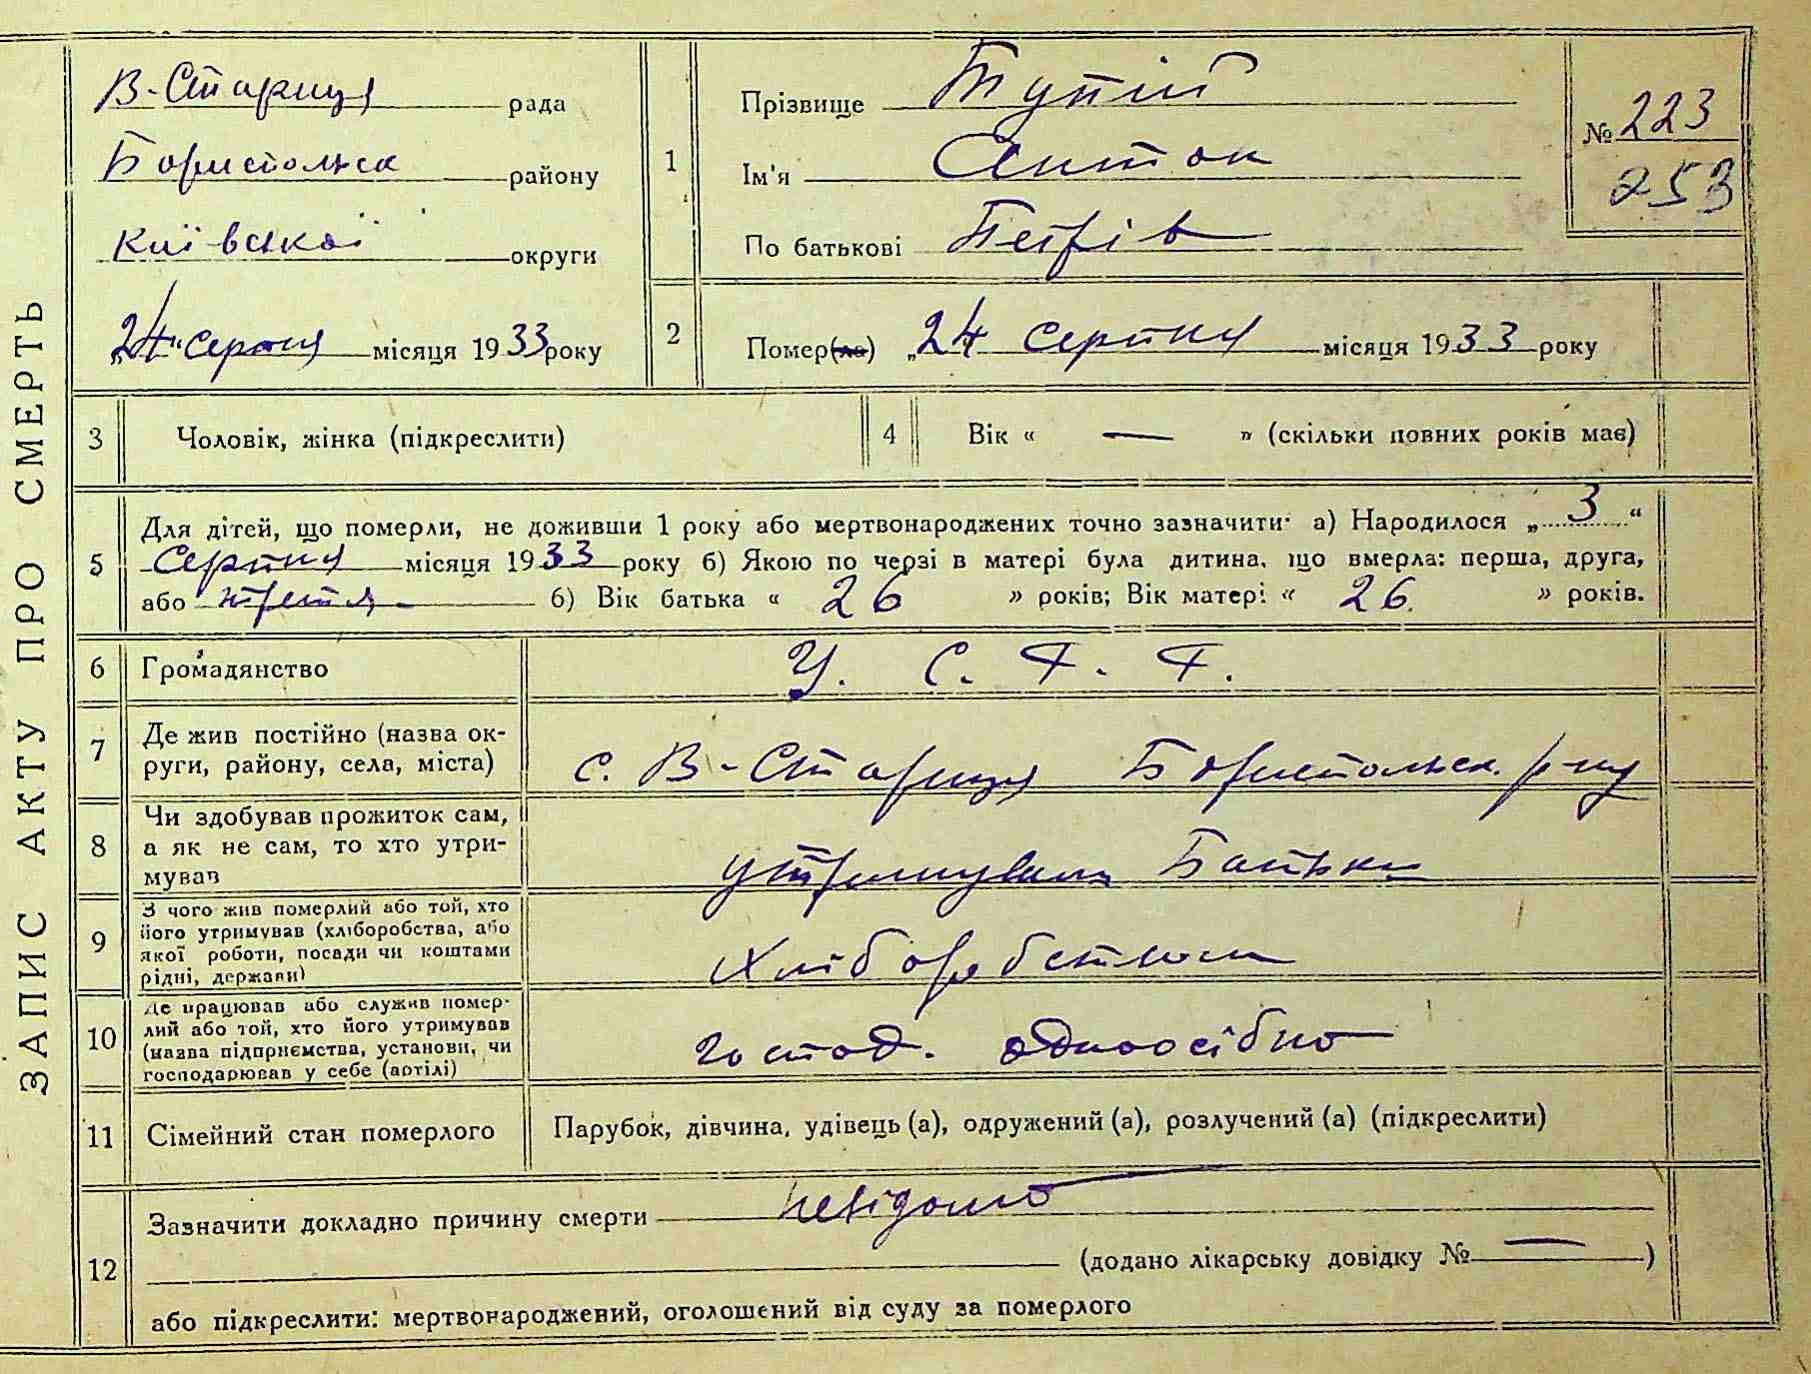 ЗАПИС АКТУ ПРО СМЕРТЬ
В-Стариця рада
Бориспольск району
Київської округи
„24“ серпня місяця 1933 року
1
Прізвище Тупій
Ім'я Антон
По батькові Петрів
№ 223
253
2
Помер(ла) „24 серпня місяця 1933 року
3 Чоловік, жінка (підкреслити)
4 Вік « — » (скільки повних років має)
5
Для дітей, що померли, не доживши 1 року або мертвонароджених точно зазначити: а) Народилося „3“
Серпня місяця 1933 року б) Якою по черзі в матері була дитина, що вмерла: перша, друга,
або третя б) Вік батька « 26 » років; Вік матері « 26 » років.
6 Громадянство У. С. Р. Р.
7 Де жив постійно (назва ок-
руги, району, села, міста) с. В-Стариця Бориспольск. р-ну
8 Чи здобував прожиток сам,
а як не сам, то хто утри-
мував утримували Батьки
9 З чого жив померлий або той, хто
його утримував (хліборобства, або
якої роботи, посади чи коштами
рідні, держави) Хліборобством
10 Де працював або служив помер-
лий або той, хто його утримував
(назва підприємства, установи, чи
господарював у себе (артілі) господ. одноосібно
11 Сімейний стан померлого Парубок, дівчина, удівець (а), одружений (а), розлучений (а) (підкреслити)
12
Зазначити докладно причину смерти невідомо
(додано лікарську довідку № — )
або підкреслити: мертвонароджений, оголошений від суду за померлого